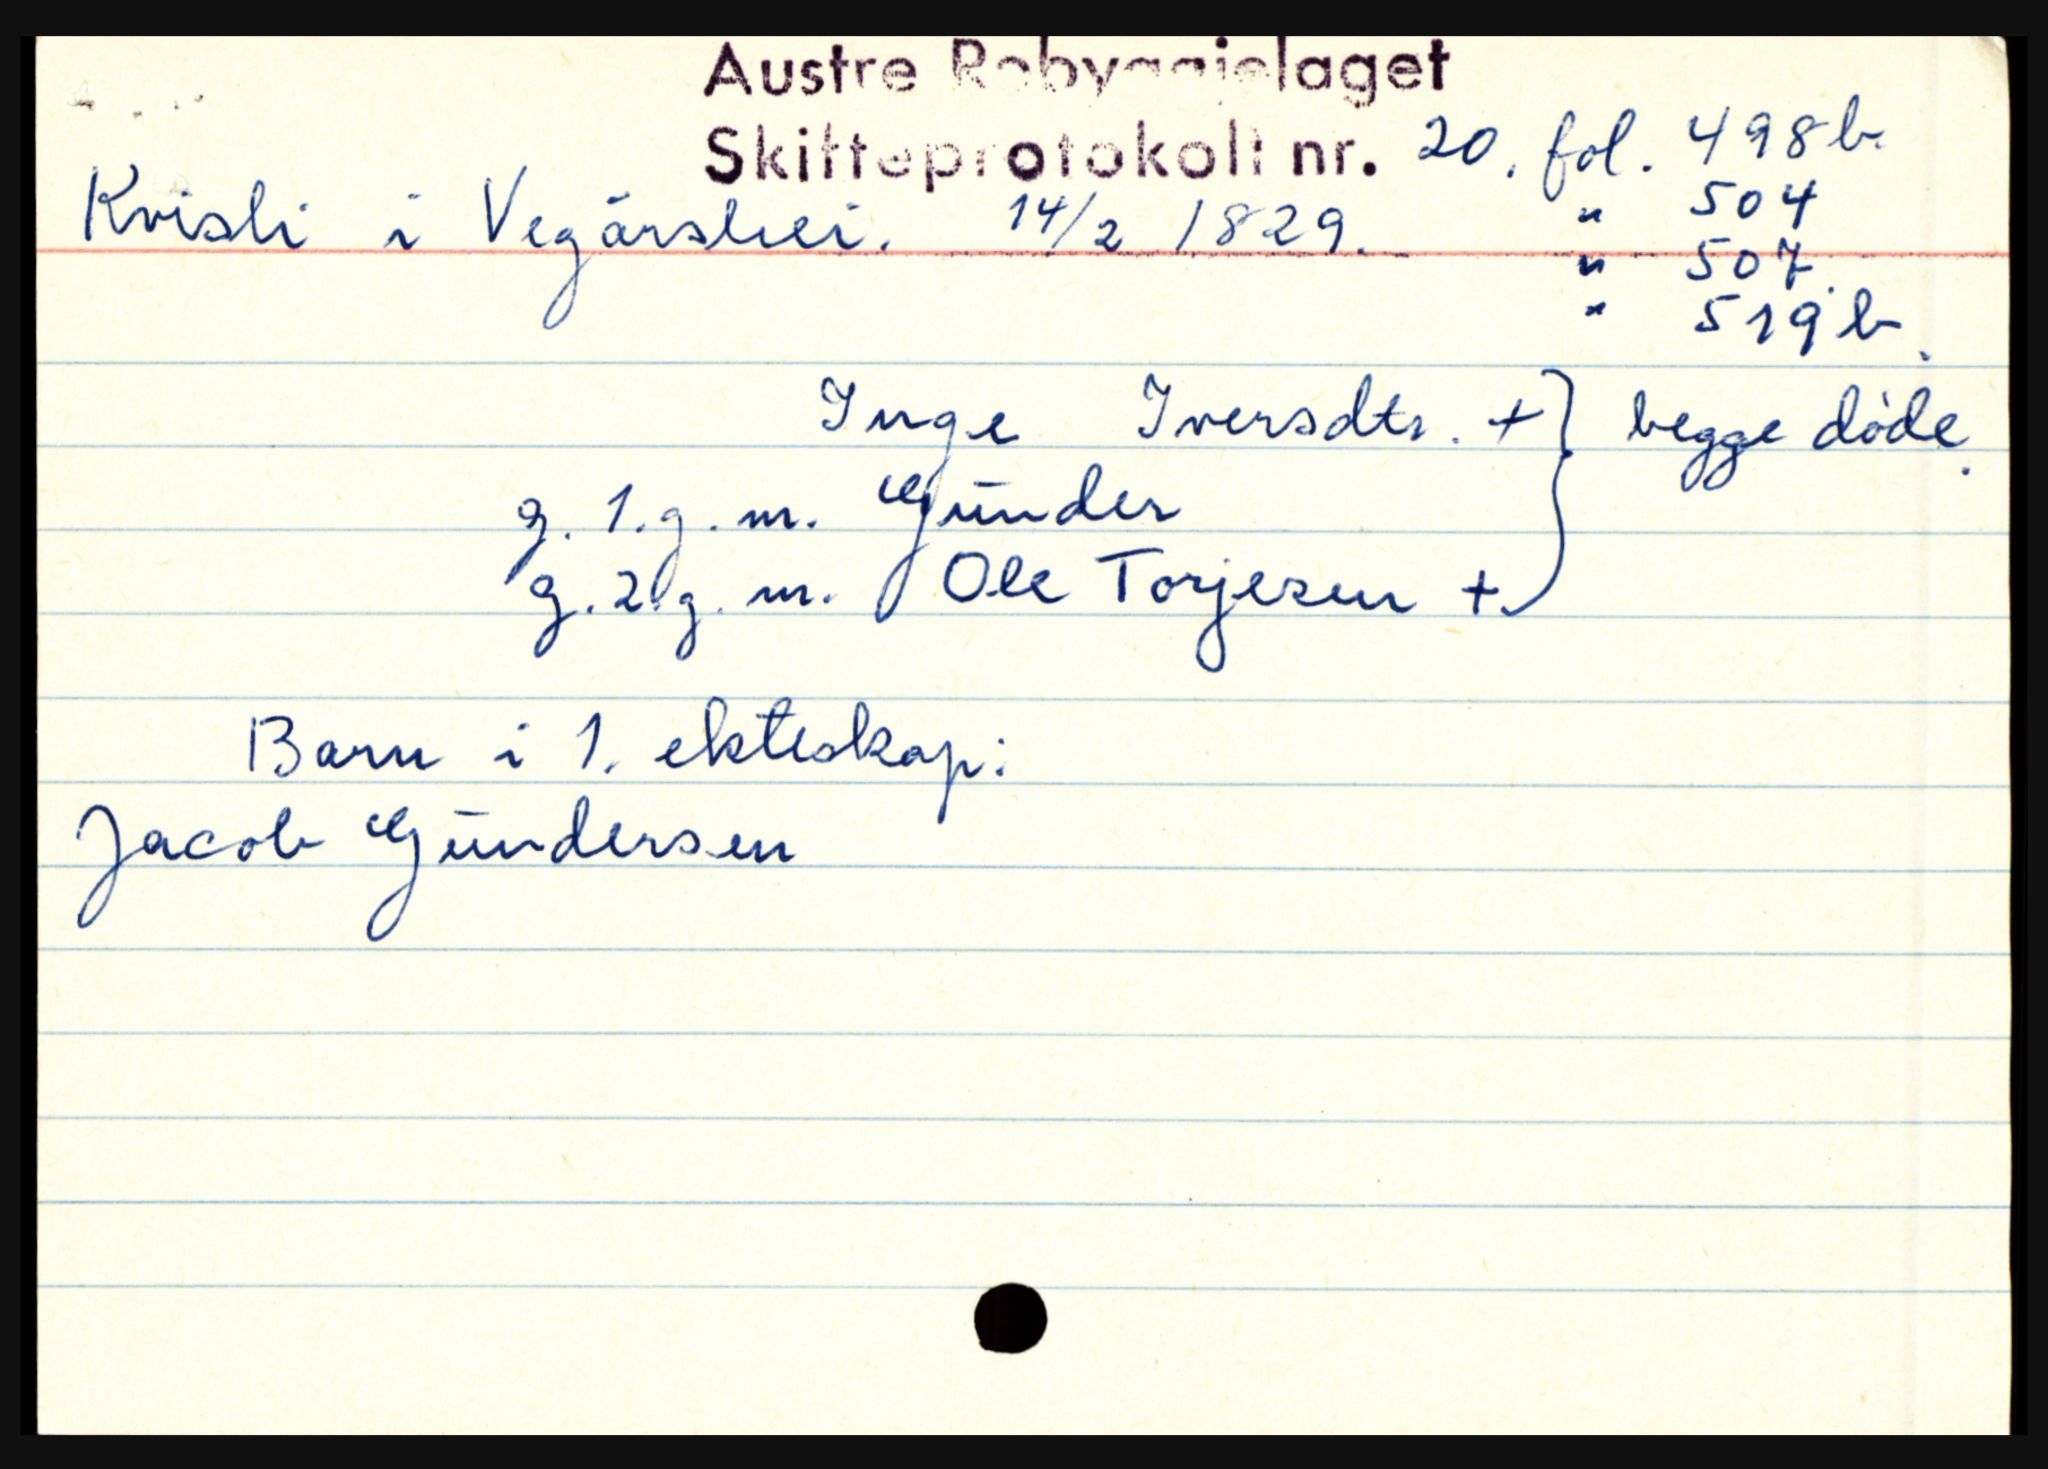 Austre Robyggjelaget
Skifteprotokoll nr. 20. fol. 498b.
Kvisli i Vegårshei. 14/2 1829. " 504
" 507.
" 519b.
Inge Iversdtr. + } begge døde.
g. 1. g. m. Gunder
g. 2. g. m. Ole Torjesen +
Barn i 1. ekteskap:
Jacob Gundersen